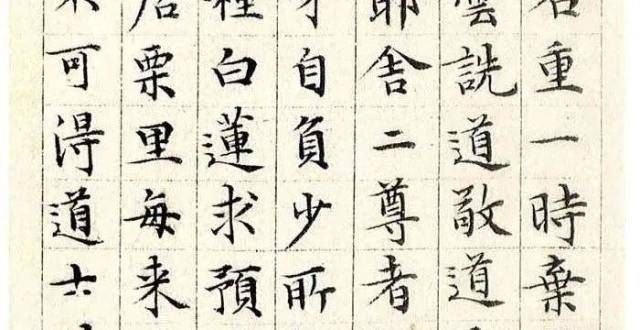 名重一時棄
曇詵道敬道
耶舍二尊者
才自負少所
種白蓮求預
居栗里每来
可得道士